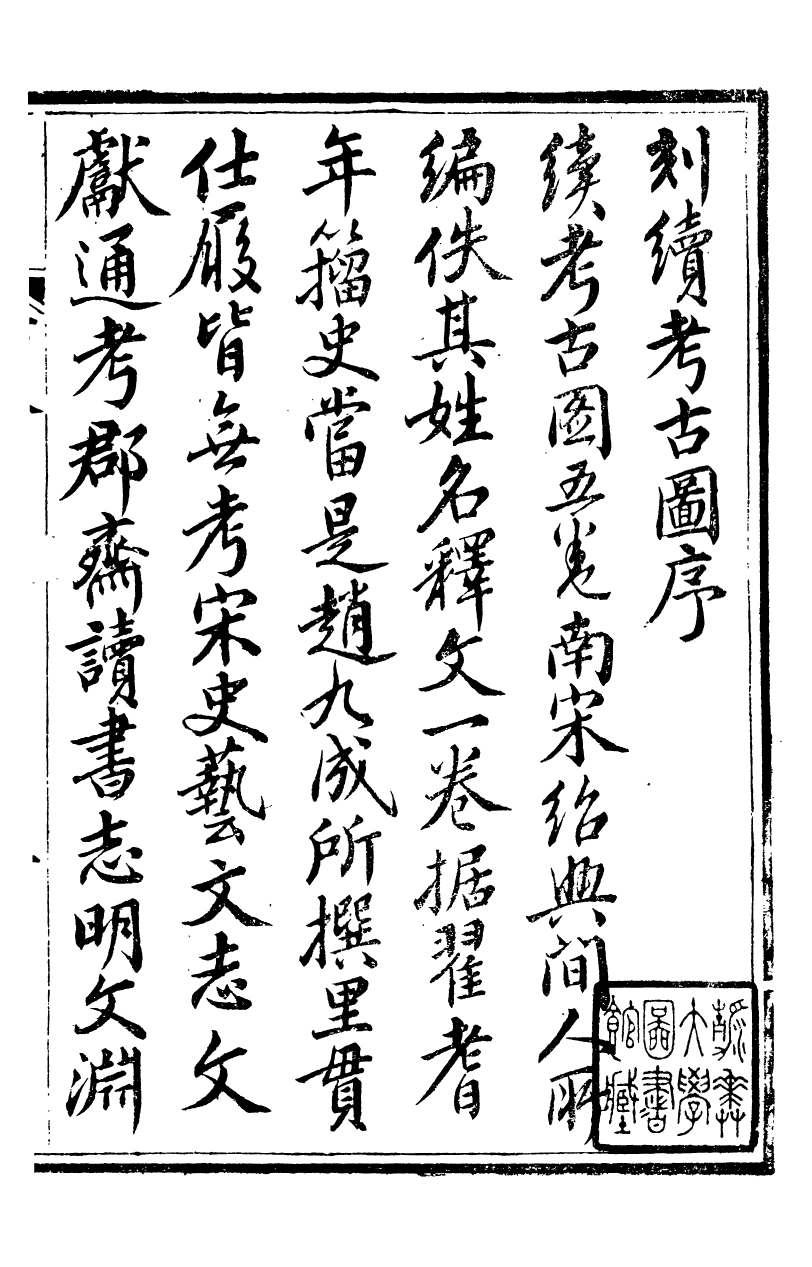 刻續考古圖序
續考古圖五卷南宋紹興間人所
編佚其姓名釋文一卷据翟耆
年籀史當是趙九成所撰里貫
仕履皆無考宋史藝文志文
獻通考郡齋讀書志明文淵
燕京大學圖書館藏